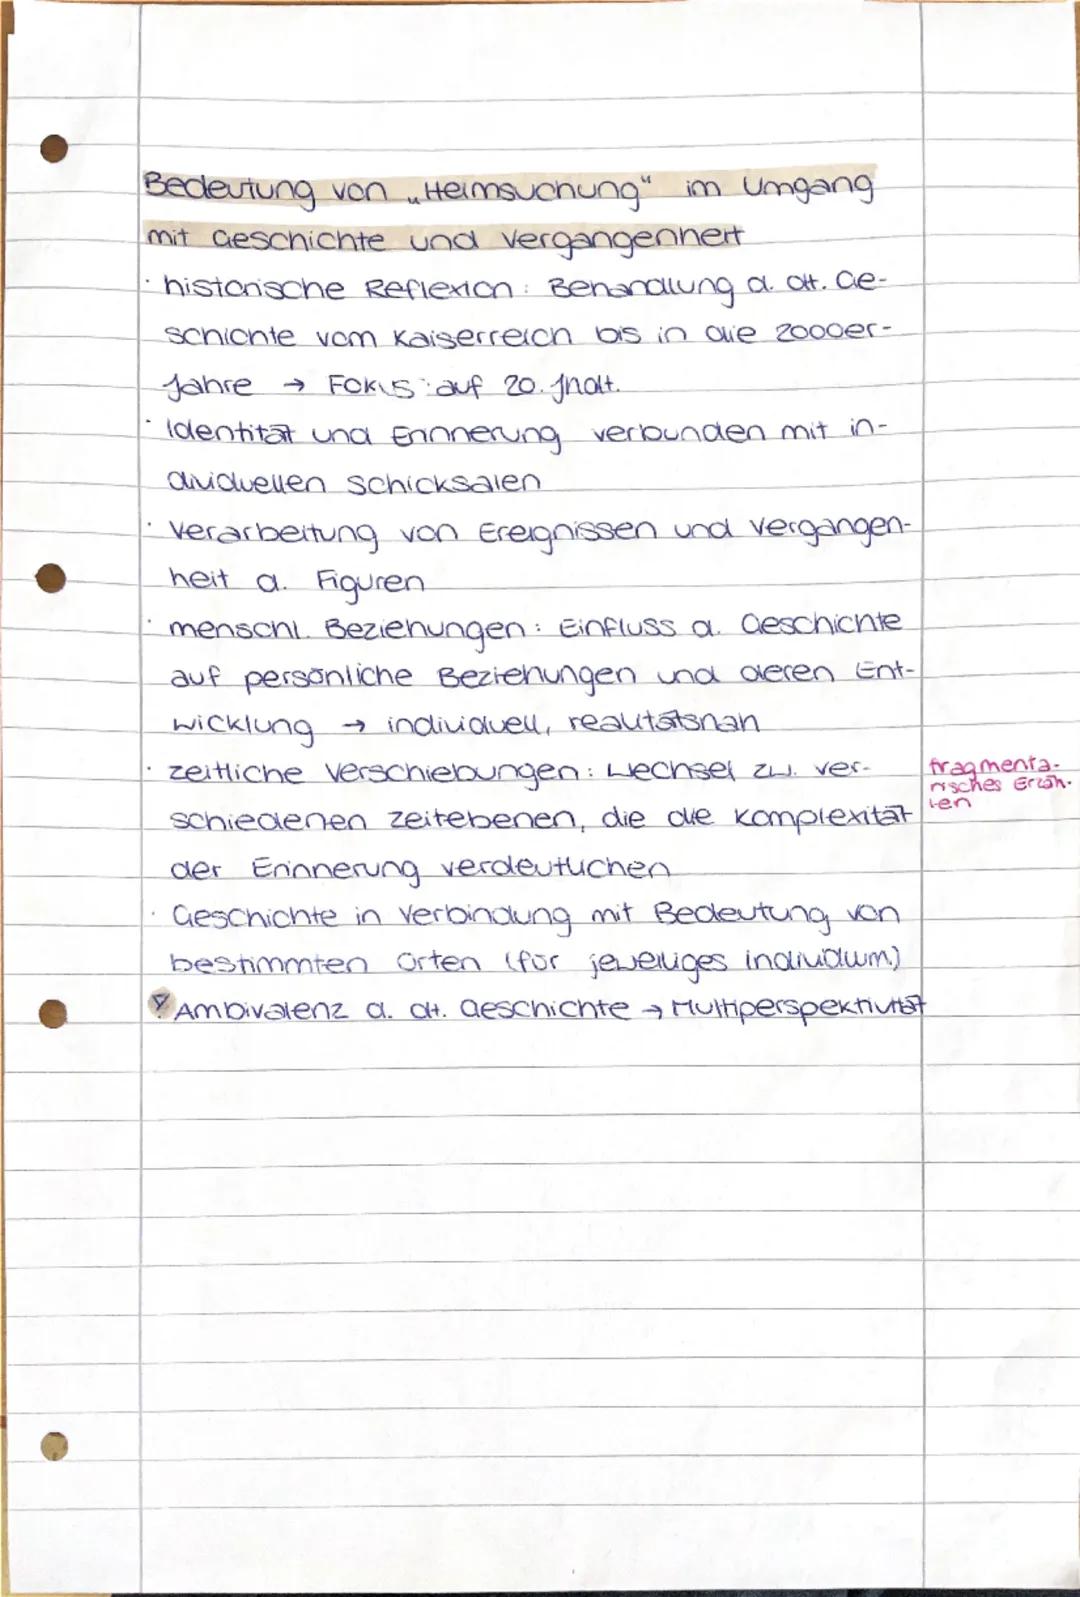 Bedeutung von „Heimsuchung“ im Umgang
mit Geschichte und Vergangenheit
· historische Reflexion: Behandlung d. dt. Ge-
schichte vom Kaiserreich bis in die 2000er-
Jahre → Fokus auf 20. Jhdt.
· Identität und Erinnerung verbunden mit in-
dividuellen Schicksalen
· Verarbeitung von Ereignissen und Vergangen-
heit d. Figuren
· menschl. Beziehungen: Einfluss d. Geschichte
auf persönliche Beziehungen und deren Ent-
wicklung → individuell, realitätsnah
· zeitliche Verschiebungen: Wechsel zw. ver-
schiedenen Zeitebenen, die die Komplexität
der Erinnerung verdeutlichen
fragmenta-
risches Erzäh-
len
· Geschichte in Verbindung mit Bedeutung von
bestimmten Orten (für jeweiliges Individuum)
Ambivalenz d. dt. Geschichte → Multiperspektivität